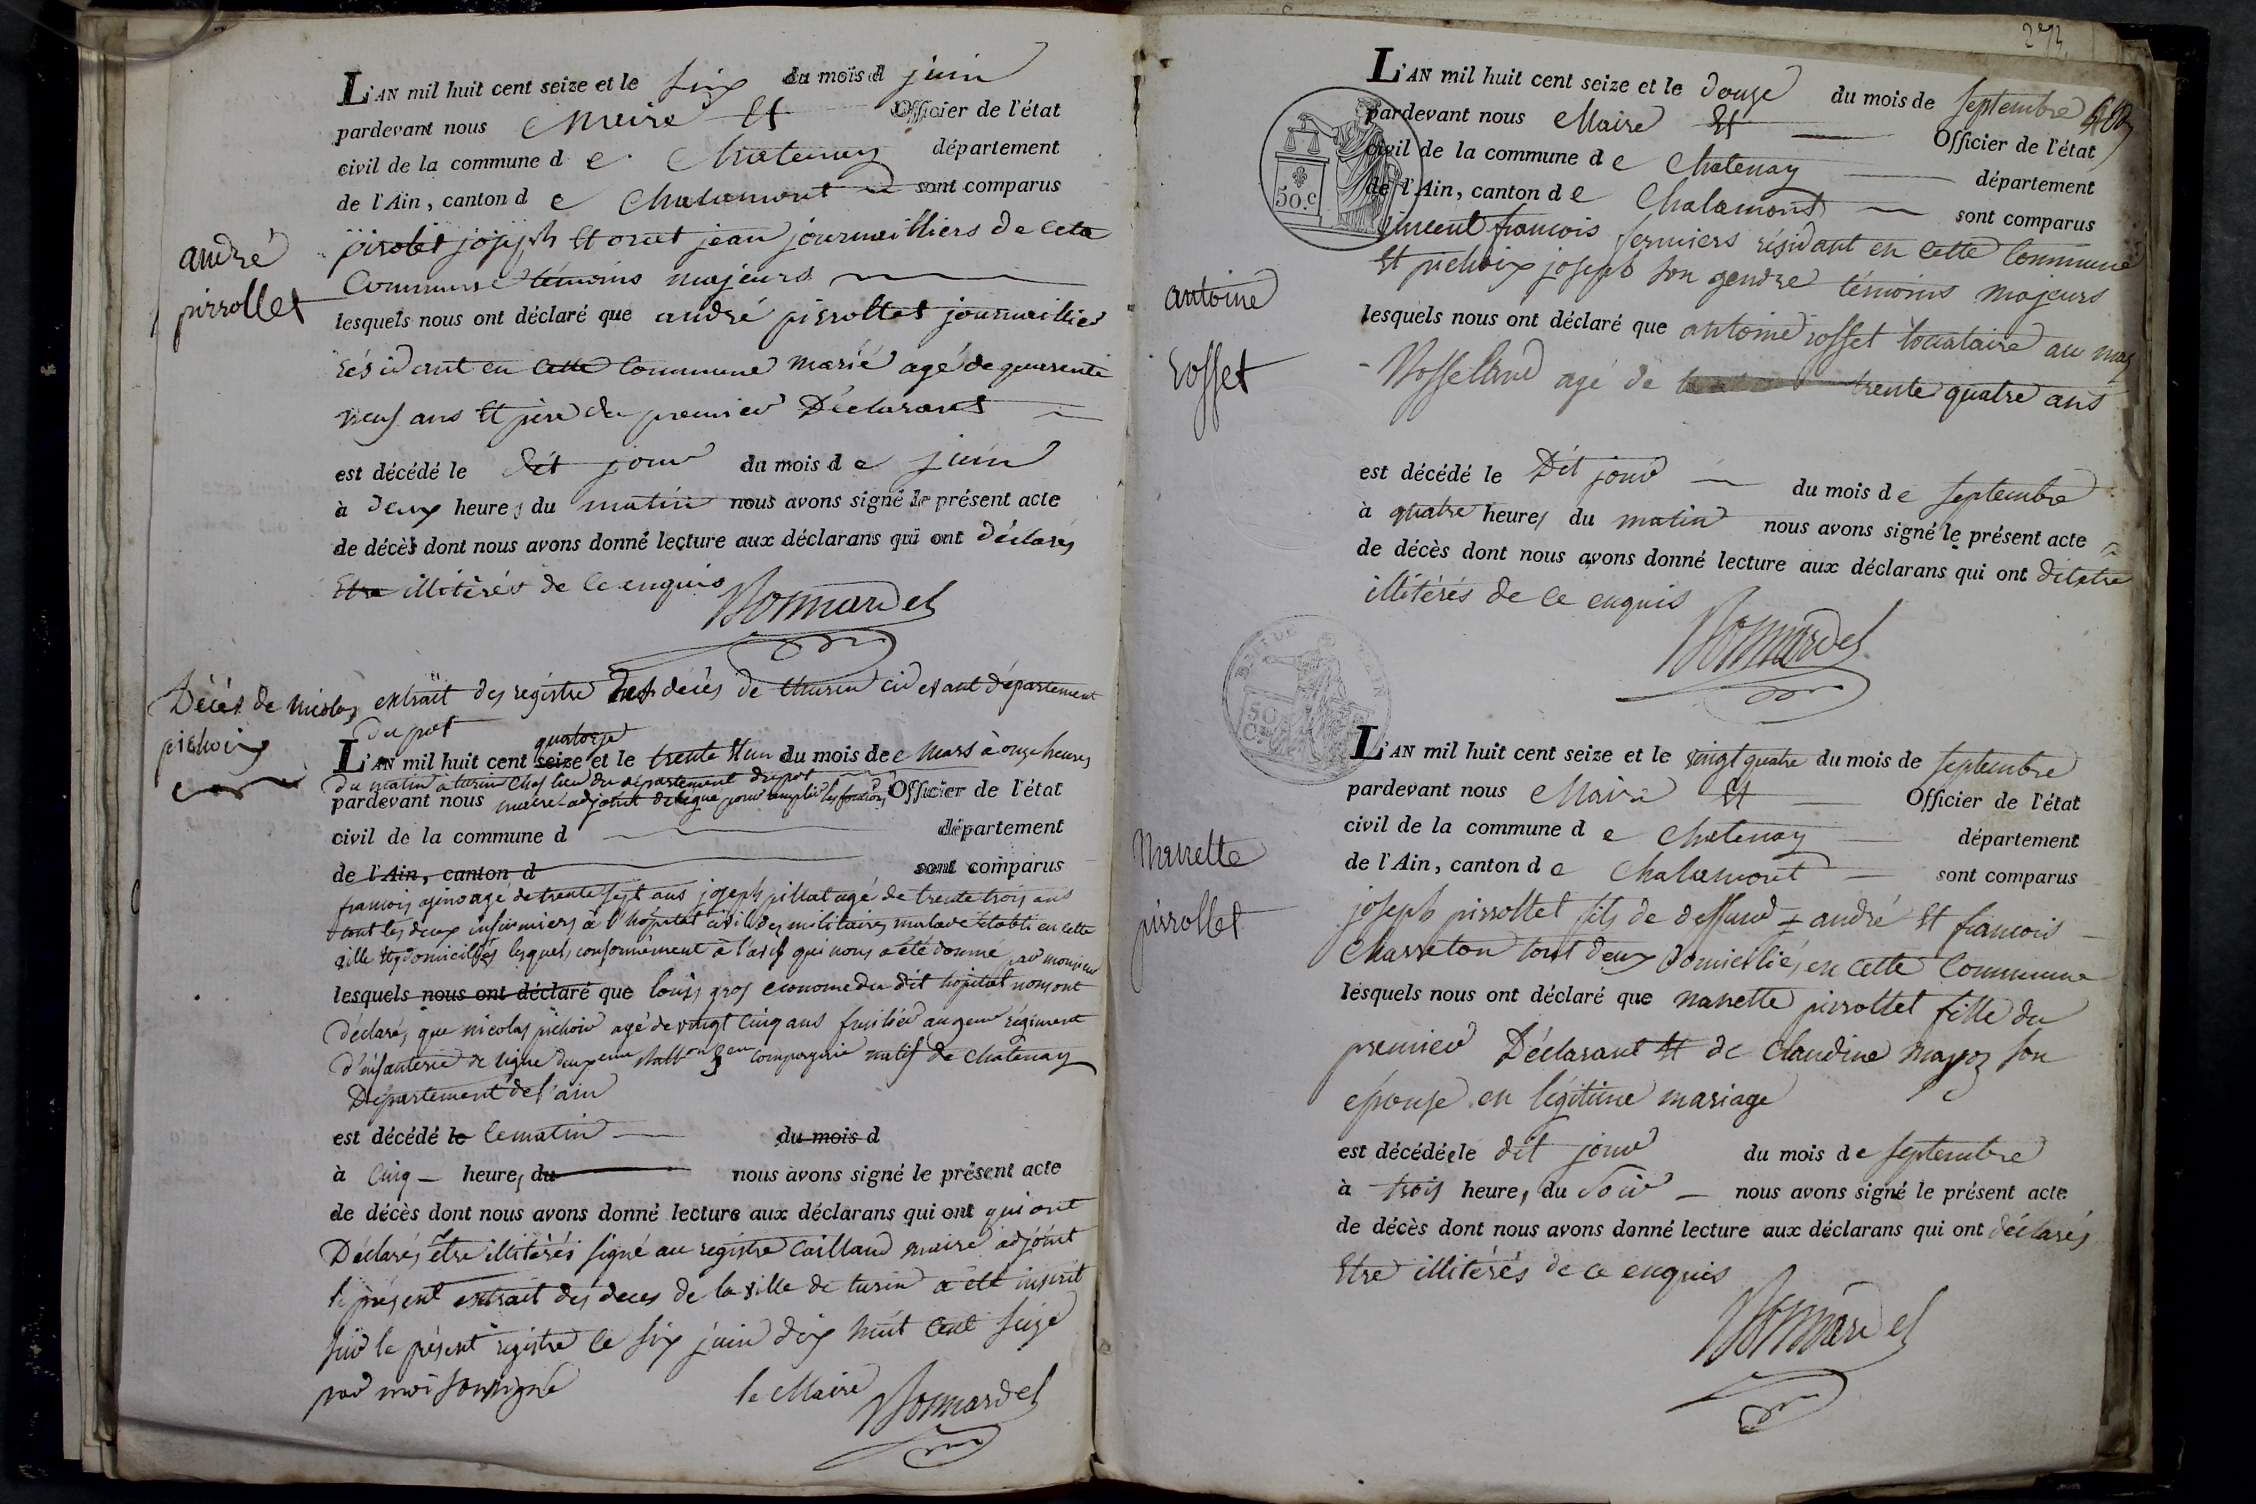 L'AN mil huit cent seize et le six du mois d juin
pardevant nous Maire Et Officier de l'état
civil de la commune d e Chatenay département
de l'Ain, canton d e Chalamont sont comparus
pirolet joseph Et oruet jean journeilliers de cete
Commune témoins majeurs
andré
pirrollet
lesquels nous ont déclaré que andré pirrollet journeillier
résidant en cette Commune marié agé de quarente
neuf ans Et père du premier Déclarant
est décédé le dit jour du mois d e juin
à deux heures du matin nous avons signé le présent acte
de décès dont nous avons donné lecture aux déclarans qui ont déclarés
Etre illitérés de ce enquis
Bonnardel
Décès de nicolas
pichoir
extrait des registre des décès de thurin ci devant département
du pot
quatorze
L'AN mil huit cent seize et le trente Et un du mois de mars à onze heures
du matin à turin Chef lieu du département du pot
pardevant nous maire adjoint délégué pour remplir les fonctions Officier de l'état
civil de la commune d département
de l'Ain, canton d sont comparus
francois agino agé de trente sept ans joseph pillat agé de trente trois ans
tout les deux infirmiers à l'hôpital civil des militaires malade établi en cette
ville Et y domiciliés lesquels conformément à l'avis qui nous a été donné par monsieur
lesquels nous ont déclaré que louis gros econome du dit hôpital nous ont
déclarés que nicolas pichoir agé de vingt cinq ans fusilier au regiment
d'infanterie de ligne deuxeme Batton 3em compagnie natif de chatenay
Département de l'ain
est décédé le ce matin du mois d
à cinq heures du nous avons signé le présent acte
de décès dont nous avons donné lecture aux déclarans qui ont qui ont
Déclarés être illitérés signé au registre Caillaud maire adjoint
le présent extrait des deces de la ville de turin a été inscrit
sur le présent registre le six juin dix huit cent seize
par moi soussigné le Maire Bonnardel
L'AN mil huit cent seize et le douze du mois de septembre
pardevant nous Maire Et Officier de l'état
civil de la commune d e Chatenay département
de l'Ain, canton d e Chalamont sont comparus
50.c
vincent francois fermiers résidant en cette Commune
Et pichoix joseph son gendre témoins majeurs
antoine
rosset
lesquels nous ont déclaré que antoine rosset locataire au mas
Rosseland agé de trente quatre ans
est décédé le Dit jour du mois d e septembre
à quatre heures du matin nous avons signé le présent acte
de décès dont nous avons donné lecture aux déclarans qui ont dit être
illitérés de ce enquis
Bonnardel
50
C.
L'AN mil huit cent seize et le vingt quatre du mois de septembre
pardevant nous Maire Et Officier de l'état
civil de la commune d e Chatenay département
de l'Ain, canton d e Chalamont sont comparus
Nanette
pirrollet
joseph pirrollet fils de deffund andré Et francois
Charreton tout deux Domiciliés en cette Commune
lesquels nous ont déclaré que nanette pirrollet fille du
premier Déclarant Et de Claudine mayoz son
épouse en légitime mariage
est décédée le dit jour du mois d e septembre
à trois heures du soir nous avons signé le présent acte
de décès dont nous avons donné lecture aux déclarans qui ont déclarés
Etre illitérés de ce enquis
Bonnardel